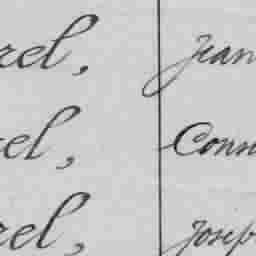 rel, Jean
rel, Conn
rel, Joseph